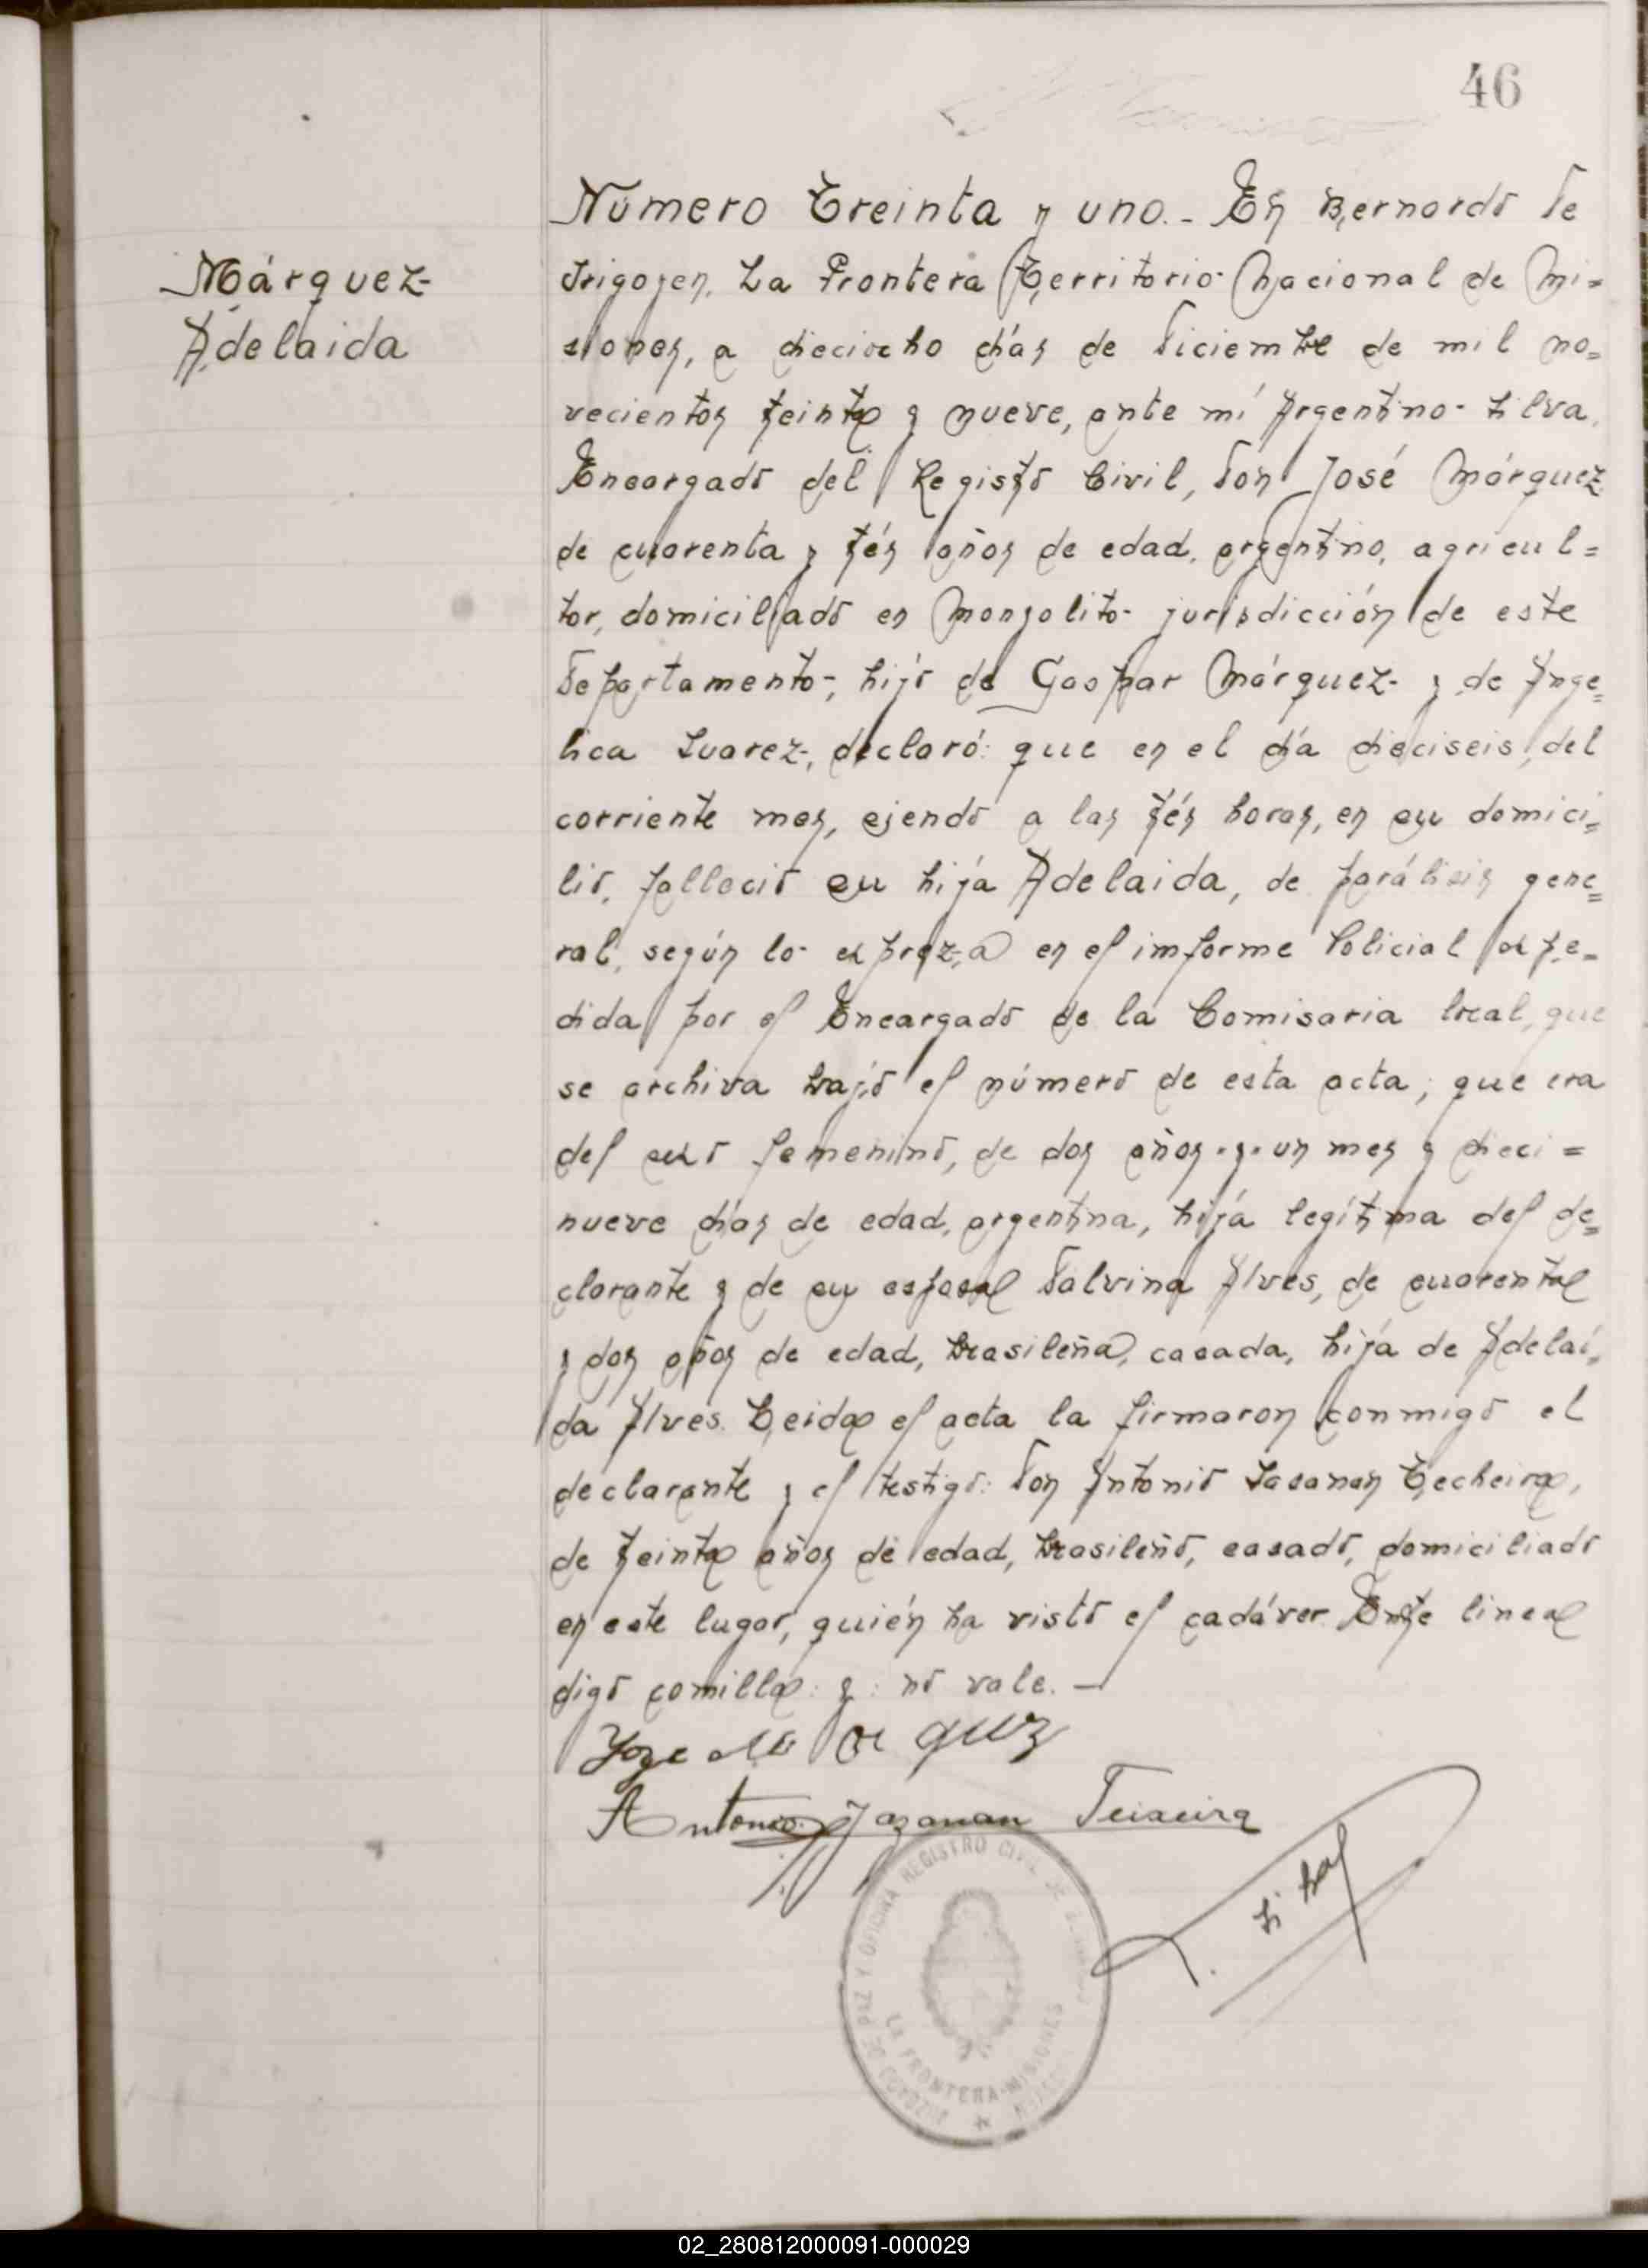 46
Márquez-
Adelaida
Número Treinta y uno.- En Bernardo de
Irigoyen, La Frontera Territorio Nacional de Mi=
siones, a dieciocho días de Diciembre de mil no=
vecientos treinta y nueve, ante mí Argentino Silva,
Encargado del Registro Civil, Don José Márquez
de cuarenta y trés años de edad, argentino, agricul=
tor, domiciliado en Monzolito jurisdicción de este
Departamento-, hijo de Gaspar Márquez- y de Ange=
lica Suarez-, declaró: que en el día dieciseis, del
corriente mes, siendo a las trés horas, en su domici=
lio, falleció su hija Adelaida, de parálisis gene=
ral, según lo expreza en el imforme Policial expe=
dida por el Encargado de la Comisaria local, que
se archiva bajo el número de esta acta; que era
del sexo femenino, de dos años y un mes y dieci=
nueve días de edad, argentina, hija legítima del de=
clarante y de su esposa Dalvina Alves, de cuarenta
y dos años de edad, brasileña, casada, hija de Adelai=
da Alves. Leida el acta la firmaron conmigo el
declarante y el testigo: Don Antonio Jasanan Techeira,
de treinta años de edad, brasileño, casado, domiciliado
en este lugar, quién ha visto el cadáver. Entre linea
digo comilla: y: no vale.—
Joze Marquz
Antonio Jazanan Teixeira
REGISTRO CIVIL DE
JUZGADO DE PAZ Y OFICINA
LA FRONTERA-MISIONES
02_280812000091-000029